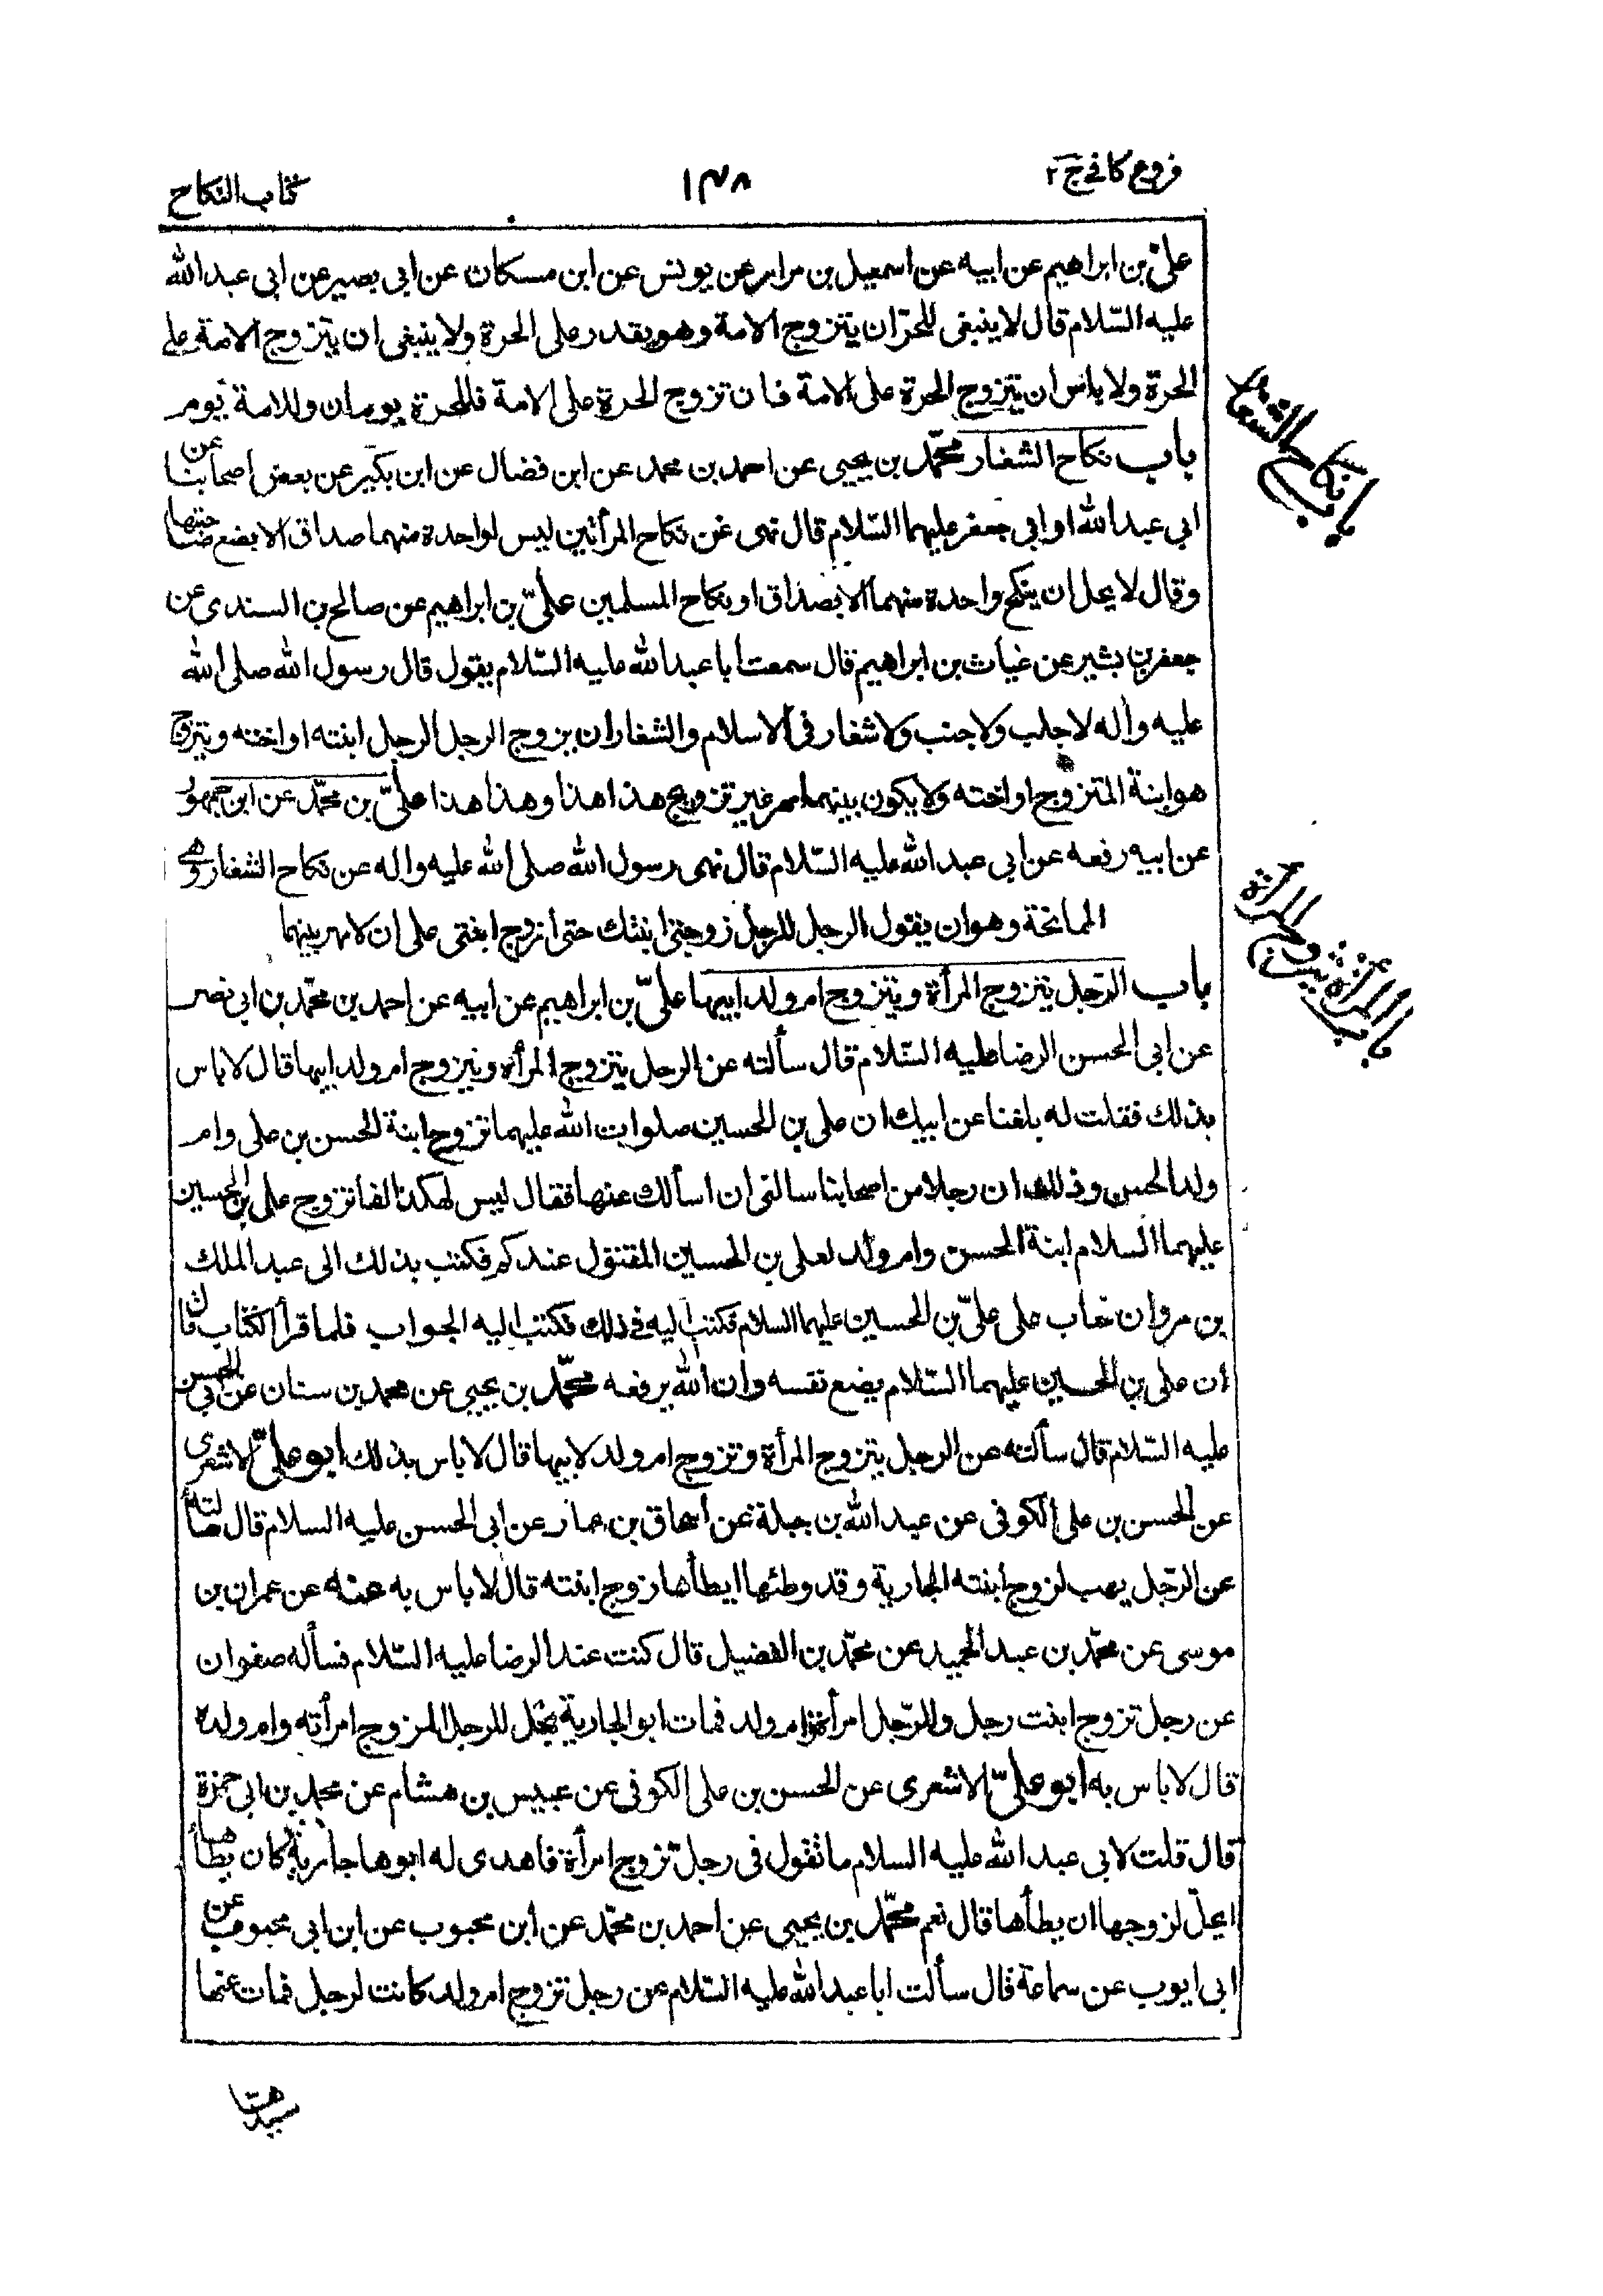 فروع كافي ج ٢
١٣٨
كتاب النكاح
علىّ بن ابراهيم عن ابيه عن اسمعيل بن مرار عن يونس عن ابن مسكان عن ابى بصير عن ابى عبد الله
عليه السّلام قال لا ينبغى للحرّ ان يتزوج الامة وهو يقدر على الحرة ولا ينبغى ان يتزوج الامة على
الحرة ولا باس ان يتزوج الحرة على الامة فان تزوج الحرة على الامة فللحرة يومان وللامة يوم
باب نكاح الشغار محمّد بن يحيى عن احمد بن محمد عن ابن فضال عن ابن بكير عن بعض اصحابنا عن
ابى عبد الله او ابى جعفر عليهما السّلام قال نهى عن نكاح المرأتين ليس لواحدة منهما صداق الا بضع صاحبتها
وقال لا يحل ان ينكح واحدة منهما الا بصداق او نكاح المسلمين علىّ بن ابراهيم عن صالح بن السندى عن
جعفر بن بشير عن غياث بن ابراهيم قال سمعت ابا عبد الله عليه السّلام يقول قال رسول الله صلى الله
عليه واله لا جلب ولا جنب ولا شغار فى الاسلام والشغار ان يزوج الرجل الرجل ابنته او اخته ويتزوج
هو ابنة المتزوج او اخته ولا يكون بينهما مهر غير تزويج هذا هذا وهذا هذا علىّ بن محمّد عن ابن جمهور
عن ابيه رفعه عن ابى عبد الله عليه السّلام قال نهى رسول الله صلى الله عليه واله عن نكاح الشغار وهى
الممانحة وهو ان يقول الرجل للرجل زوجنى ابنتك حتى ازوج ابنتى على ان لا مهر بينهما
باب الرّجل يتزوج المرأة ويتزوج ام ولد ابيها علىّ بن ابراهيم عن ابيه عن احمد بن محمّد بن ابى نصر
عن ابى الحسن الرضا عليه السّلام قال سألته عن الرجل يتزوج المرأة ويتزوج ام ولد ابيها قال لا باس
بذلك فقلت له بلغنا عن ابيك ان على بن الحسين صلوات الله عليهما تزوج ابنة الحسن بن على وام
ولد الحسن وذلك ان رجلا من اصحابنا سالنى ان اسألك عنها فقال ليس هكذا انما تزوج على بن الحسين
عليهما السلام ابنة الحسن وام ولد لعلى بن الحسين المقتول عندكم فكتب بذلك الى عبد الملك
بن مروان فعاب على علىّ بن الحسين عليهما السلام فكتب اليه فى ذلك فكتب اليه الجواب فلما قرأ الكتاب قال
ان على بن الحسين عليهما السّلام يضع نفسه وان الله يرفعه محمّد بن يحيى عن محمد بن سنان عن ابى الحسن
عليه السّلام قال سألته عن الرجل يتزوج المرأة وتزوج ام ولد لابيها قال لا باس بذلك ابو علىّ الاشعرى
عن الحسن بن على الكوفى عن عبد الله بن جبلة عن اسحاق بن عمار عن ابى الحسن عليه السلام قال سألته
عن الرّجل يهب لزوج ابنته الجارية وقد وطئها ايطأها زوج ابنته قال لا باس به عنه عن عمران بن
موسى عن محمّد بن عبد الحميد عن محمّد بن الفضيل قال كنت عند الرضا عليه السّلام فسأله صفوان
عن رجل تزوج ابنت رجل وللرّجل امرأة وام ولد فمات ابو الجارية يحل للرجل المزوج امرأته وام ولده
قال لا باس به ابو علىّ الاشعرى عن الحسن بن على الكوفى عن عبيس بن هشام عن محمد بن ابى حمزة
قال قلت لابى عبد الله عليه السلام ما تقول فى رجل تزوج امرأة فاهدى له ابوها جارية كان يطأها
ايحلّ لزوجها ان يطأها قال نعم محمّد بن يحيى عن احمد بن محمّد عن ابن محبوب عن ابن ابى محبوب عن
ابى ايوب عن سماعة قال سألت ابا عبد الله عليه السّلام عن رجل تزوج ام ولد كانت لرجل فمات عنها
سيدها
باب نكاح الشغار